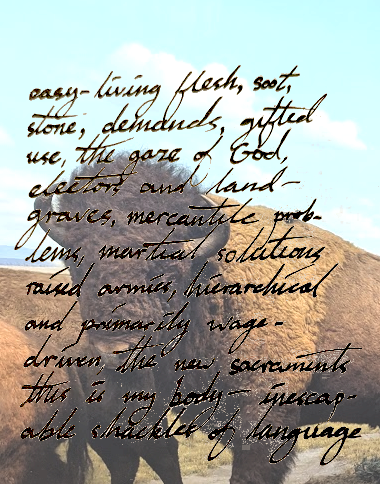 easy-living flesh, soot,
stone, demands, gifted
use, the gaze of God,
electors and land-
graves, mercantile prob-
lems, martial solutions
raised armies, hierarchical
and primarily wage-
driven, the new sacraments
this is my body— inescap-
able shackles of language